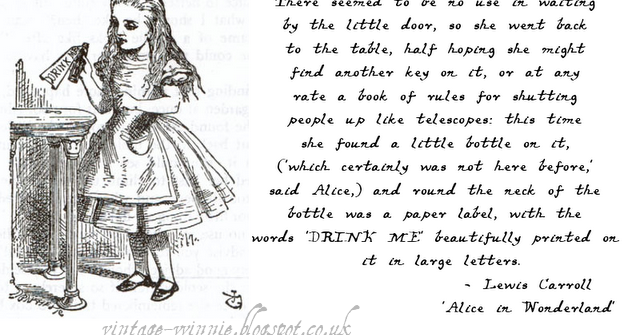 DRINK
There seemed to be no use in waiting
by the little door, so she went back
to the table, half hoping she might
find another key on it, or at any
rate a book of rules for shutting
people up like telescopes: this time
she found a little bottle on it,
('which certainly was not here before,'
said Alice,) and round the neck of the
bottle was a paper label, with the
words 'DRINK ME' beautifully printed on
it in large letters.
- Lewis Carroll
'Alice in Wonderland'
vintage-winnie.blogspot.co.uk